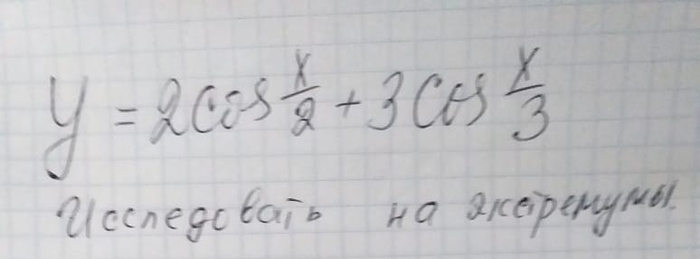 y = 2cos x/2 + 3cos x/3
Исследовать на экстремумы.